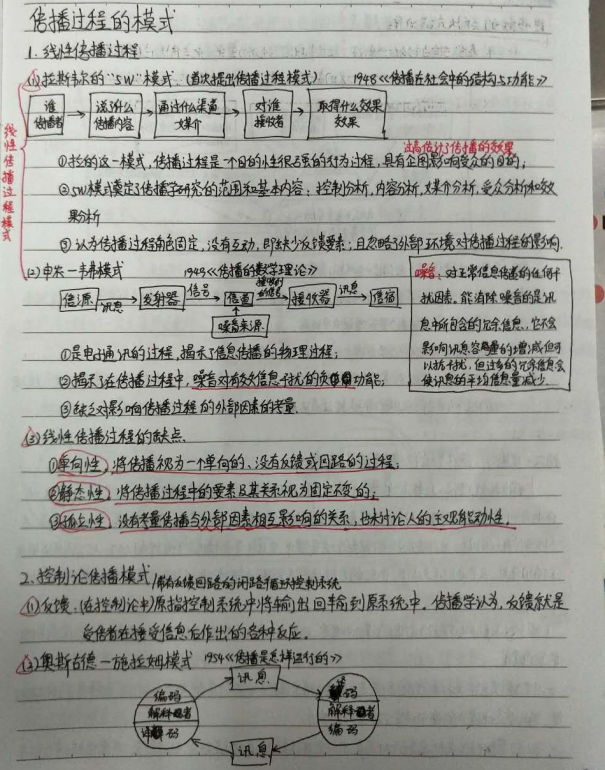 传播过程的模式
1. 线性传播过程
(1)拉斯韦尔的"5W"模式.(首次提出传播过程模式) 1948《传播在社会中的结构与功能》
线性传播过程模式
谁 传播者
说什么 传播内容
通过什么渠道 媒介
对谁 接收者
取得什么效果 效果
过高估计了传播的效果
①拉的这一模式,传播过程是个目的性很强的行为过程,具有企图影响受众的目的;
②5W模式奠定了传播学研究的范围和基本内容:控制分析,内容分析,媒介分析,受众分析和效
果分析
③认为传播过程角色固定,没有互动,即缺少反馈要素;且忽略了外部环境对传播过程的影响.
(2)申农—韦弗模式 1949《传播的数学理论》
信源 讯息 发射器 信号 信道 接收到的信号 接收器 讯息 信宿
噪音来源
噪音:对正常信息传递的任何干
扰因素。能消除噪音的是讯
息中所包含的冗余信息,它不会
影响讯息容量的增减但可
以抗干扰,但过多的冗余信息会
使讯息的平均信息量减少.
①是电子通讯的过程,揭示了信息传播的物理过程;
②揭示了在传播过程中,噪音对有效信息干扰的负功能;
③缺乏对影响传播过程的外部因素的考量.
(3)线性传播过程的缺点.
①单向性,将传播视为一个单向的、没有反馈或回路的过程;
②静态性,将传播过程中的要素及其关系视为固定不变的;
③孤立性,没有考量传播与外部因素相互影响的关系,也未讨论人的主观能动性.
2. 控制论传播模式/带有反馈回路的闭路循环控制系统
(1)反馈:(在控制论中)原指控制系统中将输出回输到原系统中。传播学认为,反馈就是
受传者在接受信息后作出的各种反应。
(2)奥斯古德—施拉姆模式 1954《传播是怎样运行的》
讯息
编码
解释者
译码
译码
解释者
编码
讯息